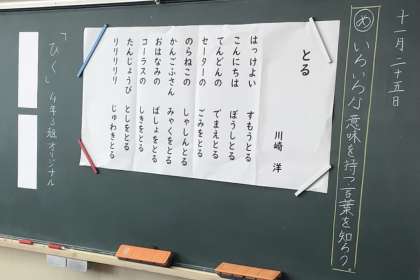 十一月二十五日
め いろいろな意味を持つ言葉を知ろう。
とる
川崎 洋
はっけよい すもうとる
こんにちは ぼうしとる
てんどんの でまえとる
セーターの ごみをとる
のらねこの しゃしんとる
かんごふさん みゃくをとる
おはなみの ばしょをとる
コーラスの しきをとる
たんじょうび としをとる
リリリリリ じゅわきとる
「ひく」 4年3組オリジナル